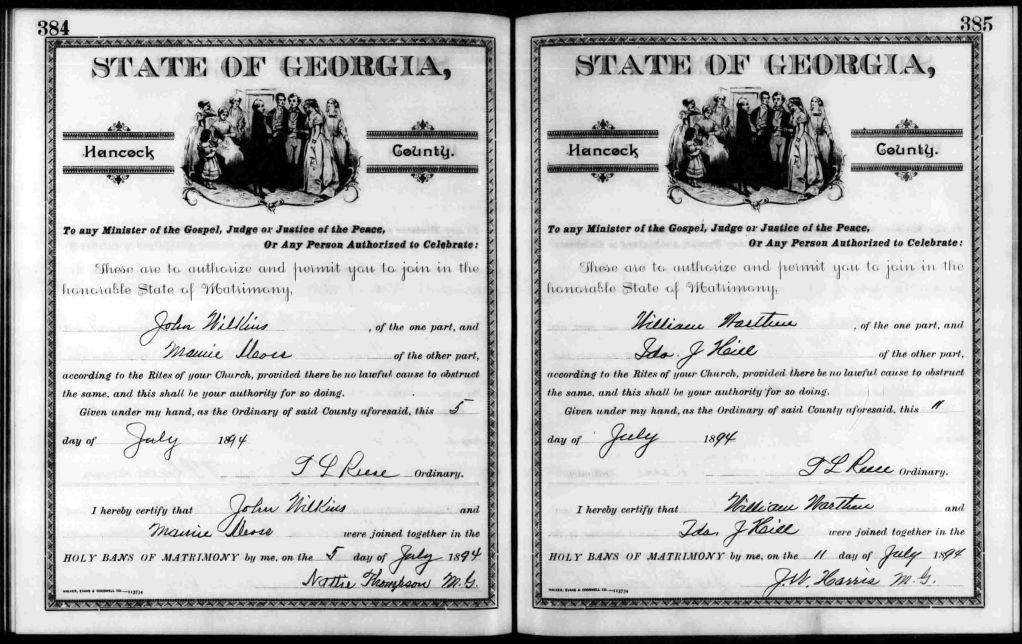 384
STATE OF GEORGIA,
Hancock County.
To any Minister of the Gospel, Judge or Justice of the Peace,
Or Any Person Authorized to Celebrate:
These are to authorize and permit you to join in the
honorable State of Matrimony,
John Wilkins , of the one part, and
Mamie of the other part,
according to the Rites of your Church, provided there be no lawful cause to obstruct
the same, and this shall be your authority for so doing.
Given under my hand, as the Ordinary of said County aforesaid, this 5
day of July 1894
T L Reese Ordinary.
I hereby certify that John Wilkins and
Mamie were joined together in the
HOLY BANS OF MATRIMONY by me, on the 5 day of July 1894
Thompson M.G.
WALKER, EVANS & COGSWELL CO.
385
STATE OF GEORGIA,
Hancock County.
To any Minister of the Gospel, Judge or Justice of the Peace,
Or Any Person Authorized to Celebrate:
These are to authorize and permit you to join in the
honorable State of Matrimony,
William Warthen , of the one part, and
Ida J Hill of the other part,
according to the Rites of your Church, provided there be no lawful cause to obstruct
the same, and this shall be your authority for so doing.
Given under my hand, as the Ordinary of said County aforesaid, this 11
day of July 1894
T L Reese Ordinary.
I hereby certify that William Warthen and
Ida J Hill were joined together in the
HOLY BANS OF MATRIMONY by me, on the 11 day of July 1894
J. W. Harris M. G.
WALKER, EVANS & COGSWELL CO.